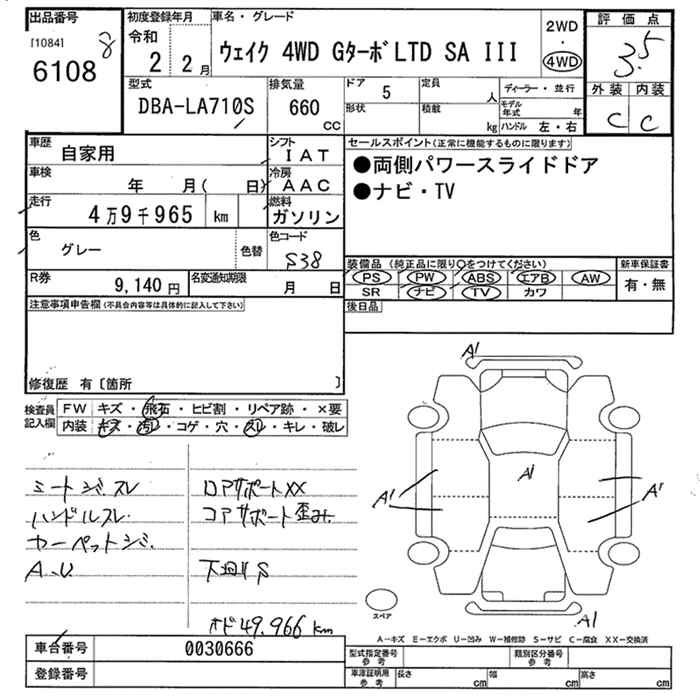 出品番号 初度登録年月 車名・グレード 2WD 評価点
[1084] 8 令和 ・ 3.5
6108 2 2月 ウェイク 4WD Gターボ LTD SA III 4WD
型式 排気量 ドア 5 定員 人 ディーラー・並行 外装 内装
DBA-LA710S 660 cc 形状 積載 kg モデル年式 年 C C
ハンドル 左・右
車歴 自家用 シフト IAT セールスポイント(正常に機能するものに限ります)
車検 年 月( 日) 冷房 AAC ●両側パワースライドドア
走行 4万9千965 km 燃料 ガソリン ●ナビ・TV
色 グレー 色替 色コード S38
R券 9,140円 名変通知期限 月 日 装備品(純正品に限り○をつけてください) 新車保証書
PS PW ABS エアB AW 有・無
SR ナビ TV カワ
注意事項申告欄(不具合内容等は具体的に記入して下さい) 後日品
修復歴 有〔箇所 〕
検査員記入欄 FW キズ・飛石・ヒビ割・リペア跡・×要
内装 キズ・汚レ・コゲ・穴・スレ・キレ・破レ
シートシミ スレ コアサポートXX
ハンドルスレ コアサポート歪み
カーペットシミ
下廻りS
メド49.966km
A1
A1
A1 A1
A1
スペア
A-キズ E-エクボ U-凹み W-補修跡 S-サビ C-腐食 XX-交換済
車台番号 0030666 型式指定番号 参考 類別区分番号 参考
登録番号 車庫証明用 参考 長さ cm 幅 cm 高さ cm